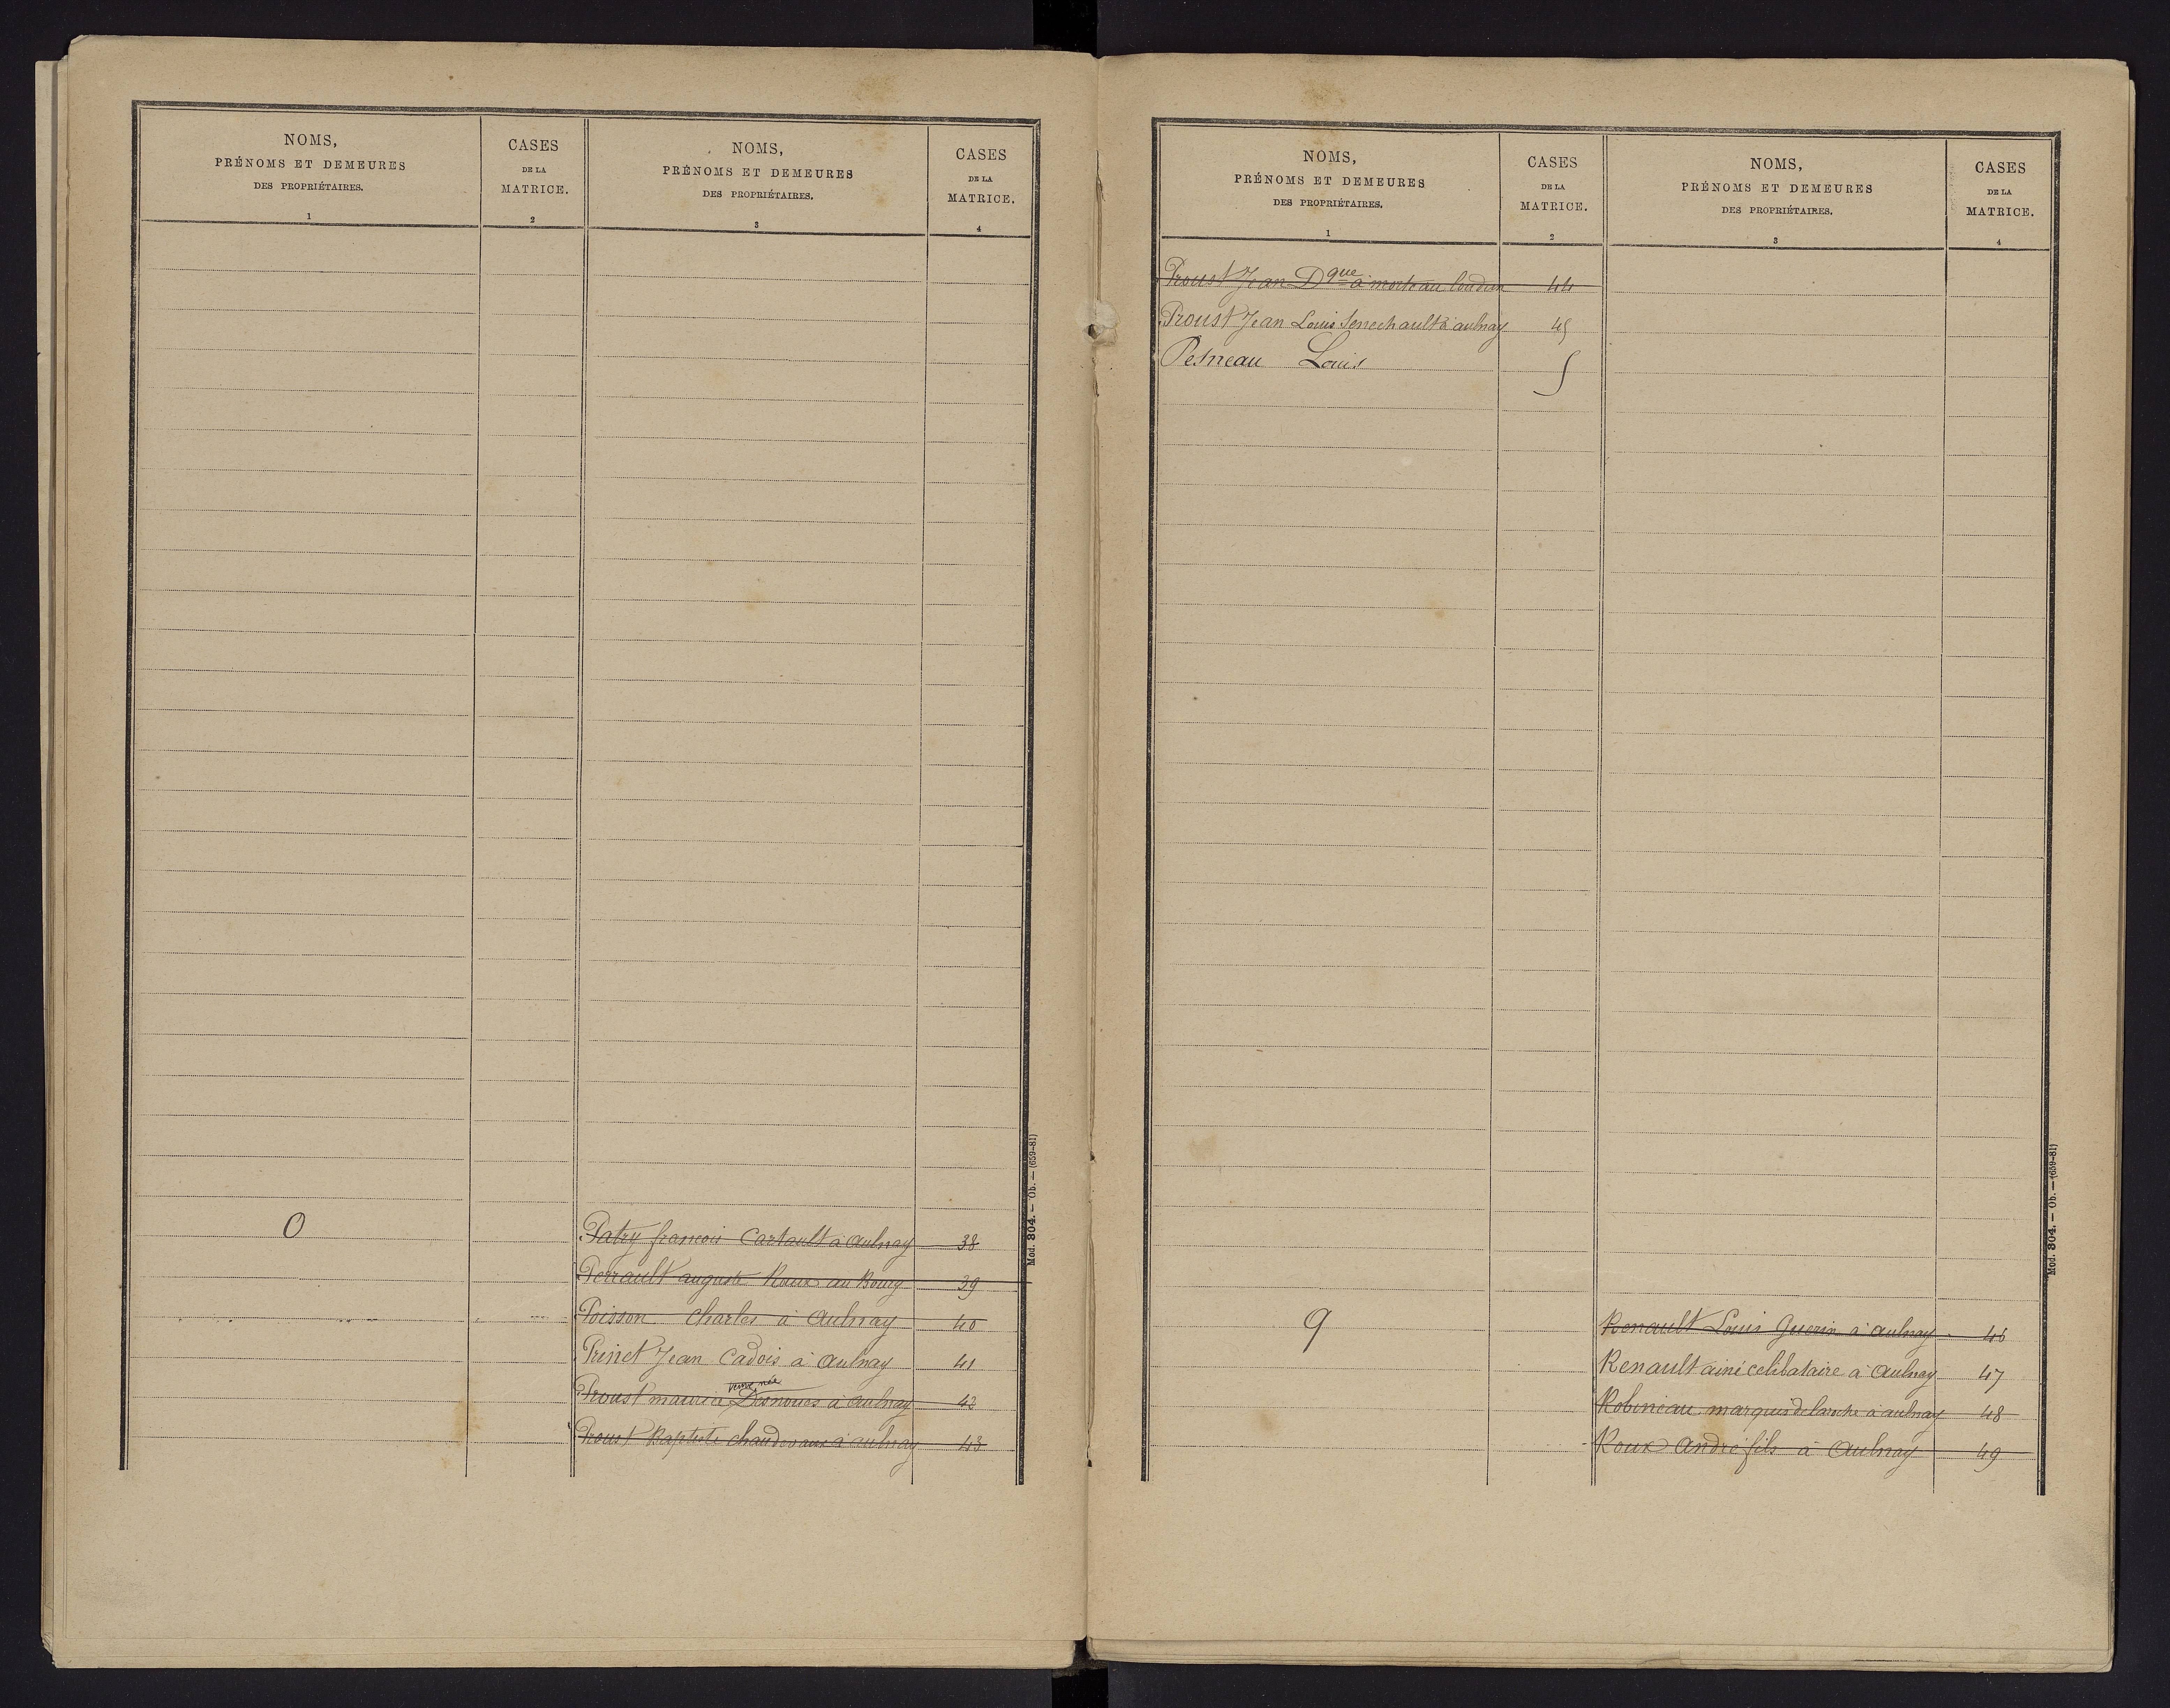 NOMS,
PRÉNOMS ET DEMEURES
DES PROPRIÉTAIRES.
1
CASES
DE LA
MATRICE.
2
NOMS,
PRÉNOMS ET DEMEURES
DES PROPRIÉTAIRES.
3
CASES
DE LA
MATRICE.
4
O
Patry francois Cartault à Aulnay 38
Perrault auguste Roux au Bourg 39
Poisson Charles à Aulnay 40
Prinet Jean Cadois à Aulnay 41
veuve née
Proust maurice Desnoues à aulnay 42
Proust Baptiste chaudevaux à aulnay 43
Mod. 304. — Ob. — (659-81)
NOMS,
PRÉNOMS ET DEMEURES
DES PROPRIÉTAIRES.
1
CASES
DE LA
MATRICE.
2
NOMS,
PRÉNOMS ET DEMEURES
DES PROPRIÉTAIRES.
3
CASES
DE LA
MATRICE.
4
Proust Jean Dque à morteau loudun 44
Proust Jean Louis Senechault à aulnay 45
Pesneau Louis
9
Renault Louis Guerin à aulnay 46
Renault ainé celibataire à Aulnay 47
Robineau marquis delaroche à aulnay 48
Roux André fils à Aulnay 49
Mod. 304. — Ob. — (659-81)